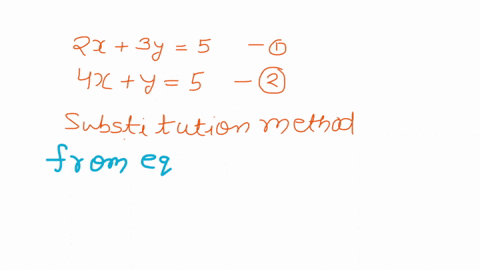 2x + 3y = 5 - ①
4x + y = 5 - ②
Substitution method
from eq